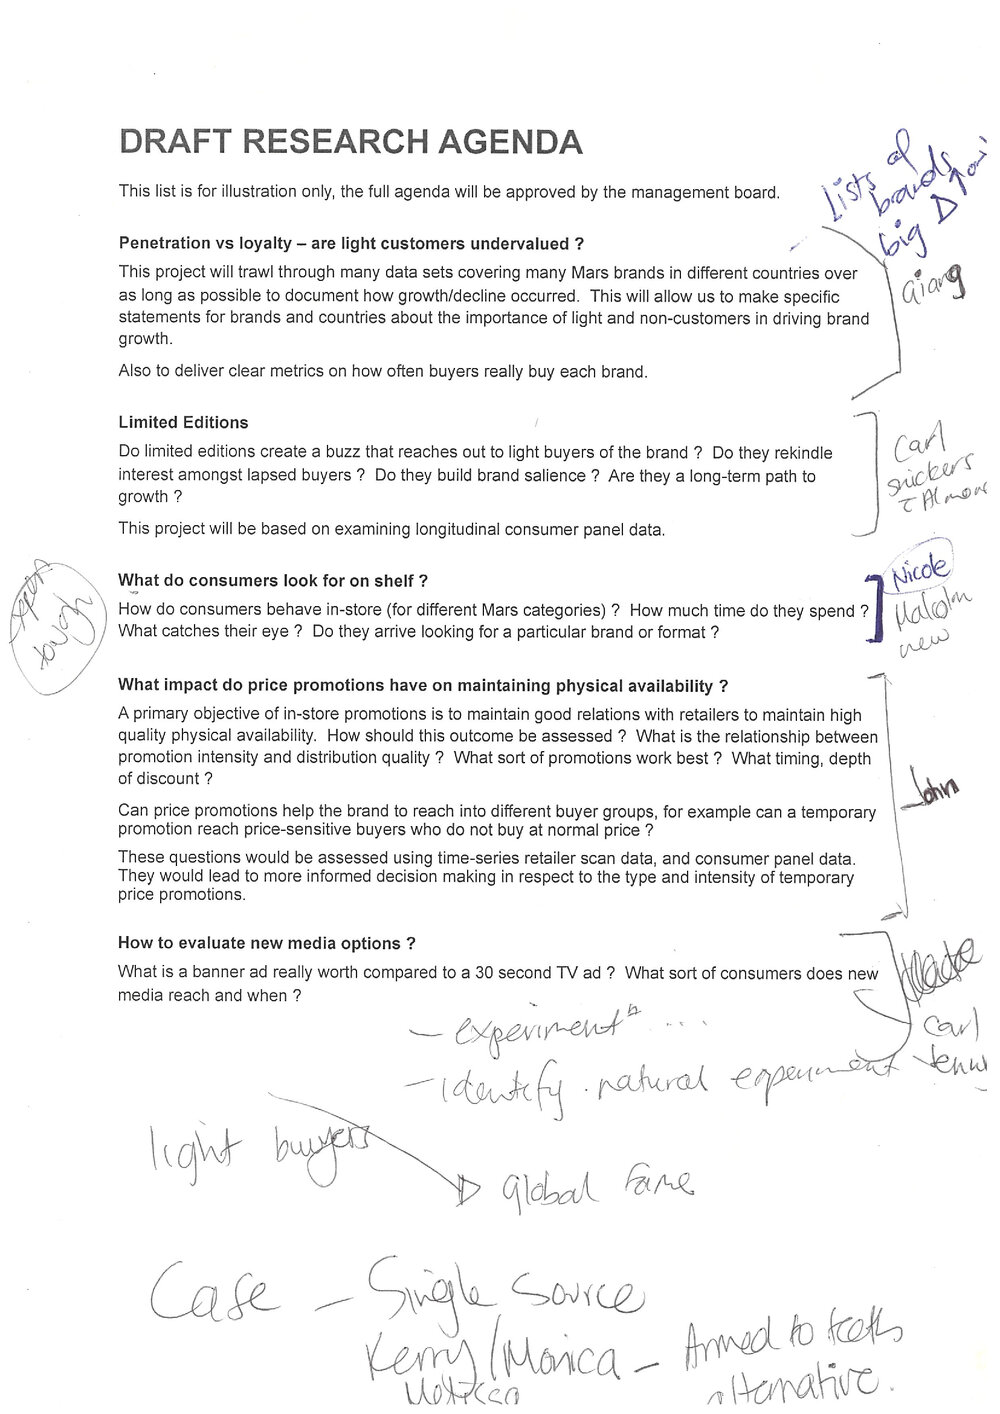 DRAFT RESEARCH AGENDA
This list is for illustration only, the full agenda will be approved by the management board.
Lists of
brands
big
Penetration vs loyalty – are light customers undervalued ?
This project will trawl through many data sets covering many Mars brands in different countries over
as long as possible to document how growth/decline occurred.  This will allow us to make specific
statements for brands and countries about the importance of light and non-customers in driving brand
growth.
Also to deliver clear metrics on how often buyers really buy each brand.
Giang
Limited Editions
Do limited editions create a buzz that reaches out to light buyers of the brand ?  Do they rekindle
interest amongst lapsed buyers ?  Do they build brand salience ?  Are they a long-term path to
growth ?
This project will be based on examining longitudinal consumer panel data.
Carl
snickers
What do consumers look for on shelf ?
How do consumers behave in-store (for different Mars categories) ?  How much time do they spend ?
What catches their eye ?  Do they arrive looking for a particular brand or format ?
Nicole
Malcolm
new
What impact do price promotions have on maintaining physical availability ?
A primary objective of in-store promotions is to maintain good relations with retailers to maintain high
quality physical availability.  How should this outcome be assessed ?  What is the relationship between
promotion intensity and distribution quality ?  What sort of promotions work best ?  What timing, depth
of discount ?
Can price promotions help the brand to reach into different buyer groups, for example can a temporary
promotion reach price-sensitive buyers who do not buy at normal price ?
These questions would be assessed using time-series retailer scan data, and consumer panel data.
They would lead to more informed decision making in respect to the type and intensity of temporary
price promotions.
John
How to evaluate new media options ?
What is a banner ad really worth compared to a 30 second TV ad ?  What sort of consumers does new
media reach and when ?
Carl
Jenny
– experiment ...
– Identify natural experiment
light buyers
global fame
Case – Single source
Kerry/Monica – Armed to teeth
alternative.